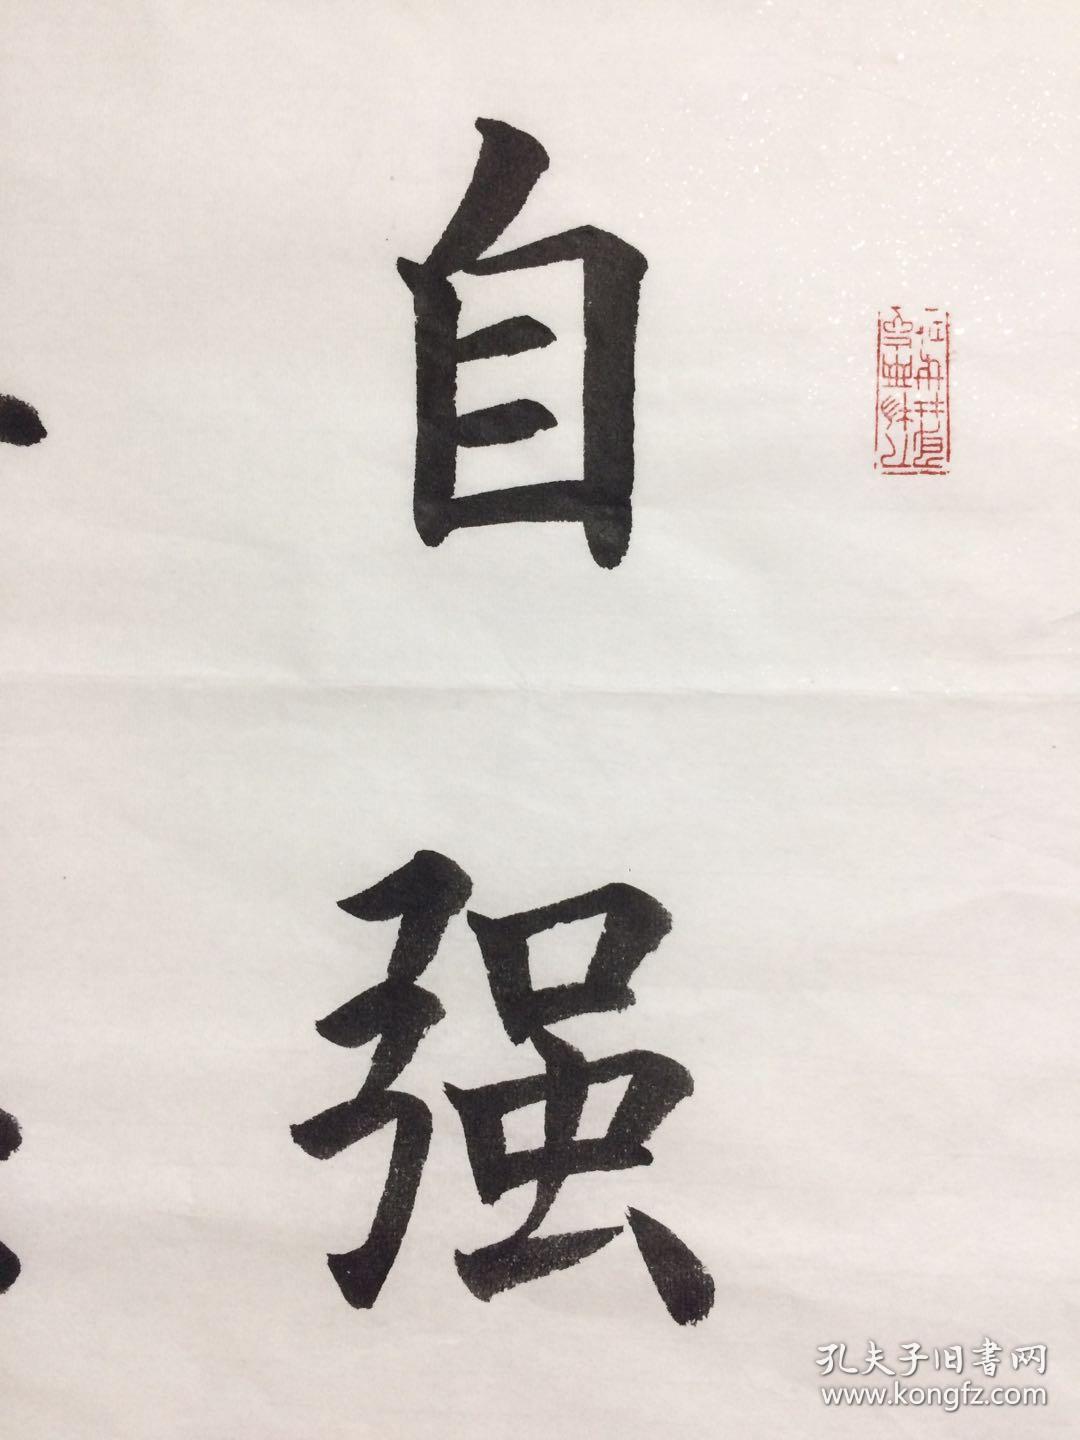 自强
孔夫子旧書网
www.kongfz.com